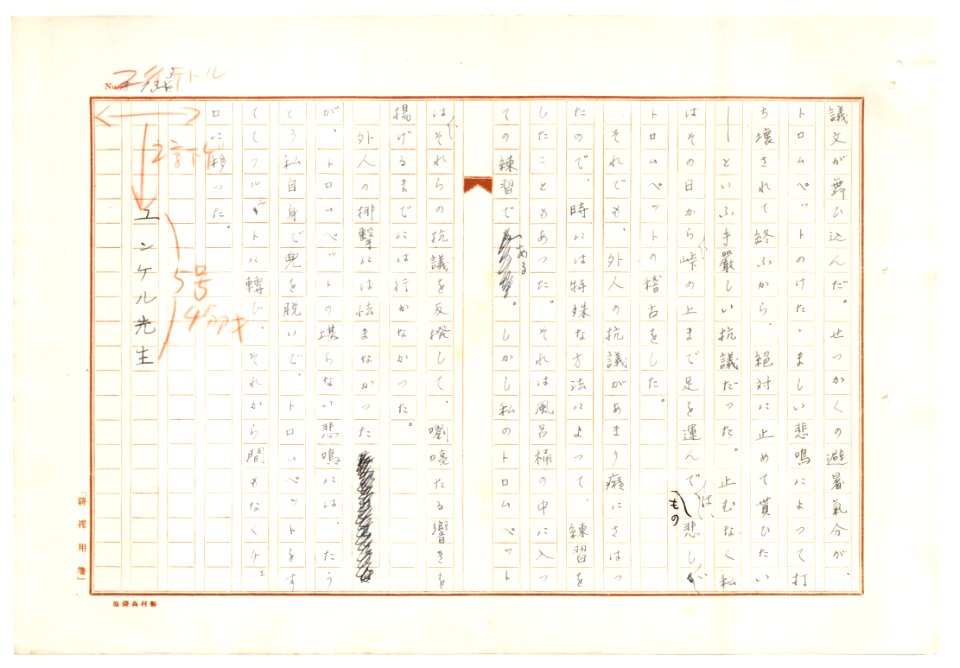 議文が舞ひ込んだ。せつかくの避暑氣分が、
トロムペットのけたゝましい悲鳴によつて打
ち壊されて終ふから、絶対に止めて貰ひたい
――といふ手嚴しい抗議だつた。止むなく私
はその日から峠の上まで足を運んで悲しい
は、
もの
トロムペットの稽古をした。
それでも、外人の抗議があまり癪にさはつ
たので、時には特殊な方法によつて、練習を
したこともあつた。それは風呂桶の中に入つ
ての練習で
ある
。しかし私のトロムペット
はそれらの抗議を反撥して、嚠喨たる響きを
揚げるまでには行かなかつた。
外人の排擊には怯まなかつた
が、トロムペットの堪らない悲鳴には、たう
とう私自身で兜を脱いで、トロムペットをす
てゝフルートに轉じ、それから間もなくチェ
ロに移つた。
エンケル先生
2言下ケ
5号
4分アキ
No.
「耕搾用箋」
池袋高村製